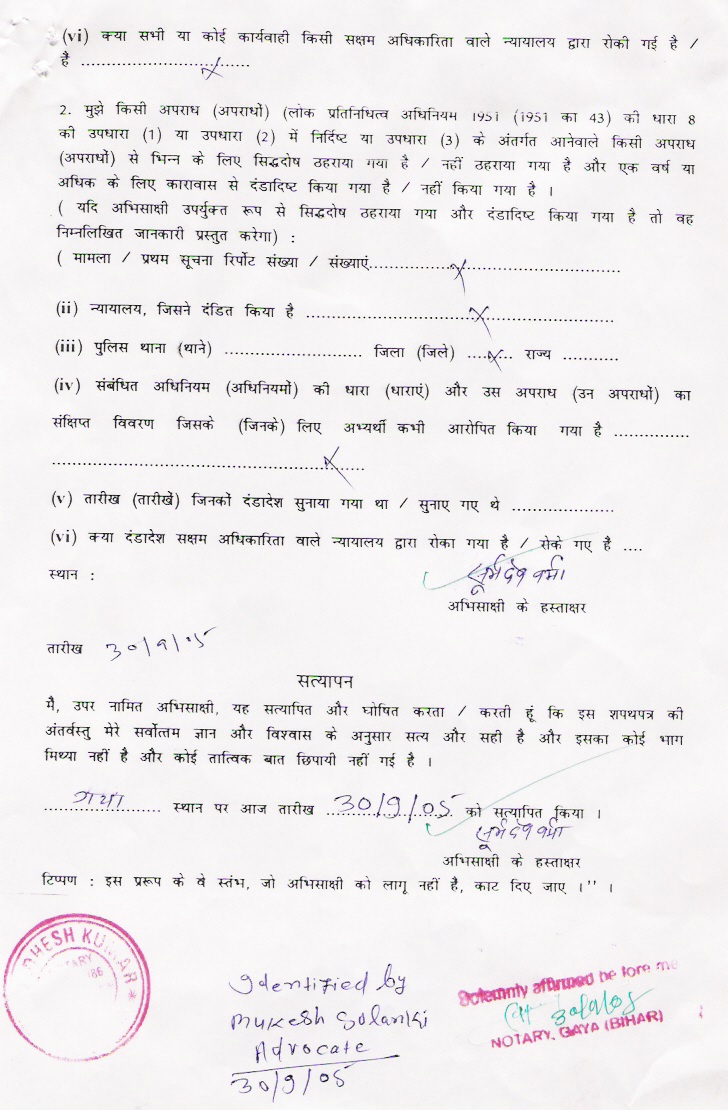 (vi) क्या सभी या कोई कार्यवाही किसी सक्षम अधिकारिता वाले न्यायालय द्वारा रोकी गई है /
हैं ....................................... x
2. मुझे किसी अपराध (अपराधों) (लोक प्रतिनिधित्व अधिनियम 1951 (1951 का 43) की धारा 8
की उपधारा (1) या उपधारा (2) में निर्दिष्ट या उपधारा (3) के अंतर्गत आनेवाले किसी अपराध
(अपराधों) से भिन्न के लिए सिद्धदोष ठहराया गया है / नहीं ठहराया गया है और एक वर्ष या
अधिक के लिए कारावास से दंडादिष्ट किया गया है / नहीं किया गया है ।
( यदि अभिसाक्षी उपर्युक्त रूप से सिद्धदोष ठहराया गया और दंडादिष्ट किया गया है तो वह
निम्नलिखित जानकारी प्रस्तुत करेगा) :
( मामला / प्रथम सूचना रिर्पोट संख्या / संख्याएं.................x.......................
(ii) न्यायालय, जिसने दंडित किया है ..........................x......................
(iii) पुलिस थाना (थाने) ........................ जिला (जिले) ....x.... राज्य ..........
(iv) संबंधित अधिनियम (अधिनियमों) की धारा (धाराएं) और उस अपराध (उन अपराधों) का
संक्षिप्त विवरण जिसके (जिनके) लिए अभ्यर्थी कभी आरोपित किया गया है ..............
..............................................x......
(v) तारीख (तारीखें) जिनकों दंडादेश सुनाया गया था / सुनाए गए थे ..................
(vi) क्या दंडादेश सक्षम अधिकारिता वाले न्यायालय द्वारा रोका गया है / रोके गए है ....
स्थान :
सूर्यदेव वर्मा
अभिसाक्षी के हस्ताक्षर
तारीख 30/9/05
सत्यापन
मै, उपर नामित अभिसाक्षी, यह सत्यापित और घोषित करता / करती हूं कि इस शपथपत्र की
अंतर्वस्तु मेरे सर्वोत्तम ज्ञान और विश्वास के अनुसार सत्य और सही है और इसका कोई भाग
मिथ्या नहीं है और कोई तात्विक बात छिपायी नहीं गई है ।
गया स्थान पर आज तारीख 30/9/05 को सत्यापित किया ।
सूर्यदेव वर्मा
अभिसाक्षी के हस्ताक्षर
टिप्पण : इस प्ररूप के वे स्तंभ, जो अभिसाक्षी को लागू नहीं है, काट दिए जाए ।'' ।
DHESH KUMAR *
86
Identified by
Mukesh Solanki
Advocate
30/9/05
Solemnly affirmed be fore me
30/9/05
NOTARY, GAYA (BIHAR)